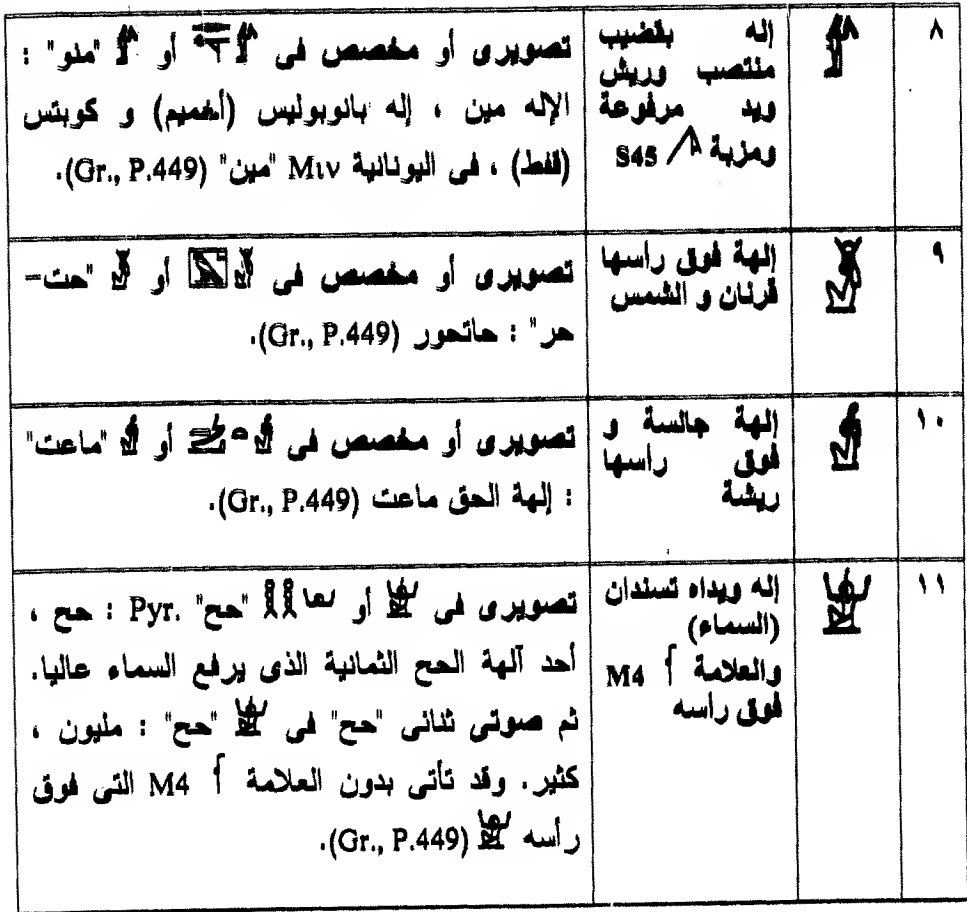 ٨
إله بقضيب
منتصب وريش
ويد مرفوعة
ومزبة S45
تصويرى أو مخصص فى أو "منو" :
الإله مين ، إله بانوبوليس (أخميم) و كوبتس
(قفط) ، فى اليونانية Μιν "مين" (Gr., P.449).
٩
إلهة فوق رأسها
قرنان و الشمس
تصويرى أو مخصص فى أو "حت-
حر" : حاتحور (Gr., P.449).
١٠
إلهة جالسة و
فوق راسها
ريشة
تصويرى أو مخصص فى أو "ماعت"
: إلهة الحق ماعت (Gr., P.449).
١١
إله ويداه تسندان
(السماء)
والعلامة M4
فوق راسه
تصويرى فى أو "حح" Pyr. : حح ،
أحد آلهة الحح الثمانية الذى يرفع السماء عاليا.
ثم صوتى ثنائى "حح" فى "حح" : مليون ،
كثير. وقد تأتى بدون العلامة M4 التى فوق
رأسه (Gr., P.449).